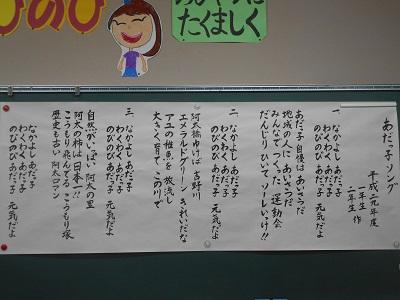 のびのび
たくましく
あだっ子ソング
平成二九年度
一年生
二年生 作
一、なかよしあだっ子
わくわくあだっ子
のびのびあだっ子 元気だよ
あだっ子自慢はあいさつだ
地域の人にあいさつだ
みんなでつくった運動会
だんじりひいて ソーレいっけ!!
二、なかよしあだっ子
わくわくあだっ子
のびのびあだっ子 元気だよ
阿太橋ゆけば吉野川
エメラルドグリーンきれいだな
アユの稚魚を放流し
大きく育てこの川で
三、なかよしあだっ子
わくわくあだっ子
のびのびあだっ子 元気だよ
自然がいっぱい阿太の里
阿太の柿は日本一!!
こうもり飛んでるこうもり塚
歴史も古い阿太ロマン
なかよしあだっ子
わくわくあだっ子
のびのびあだっ子 元気だよ